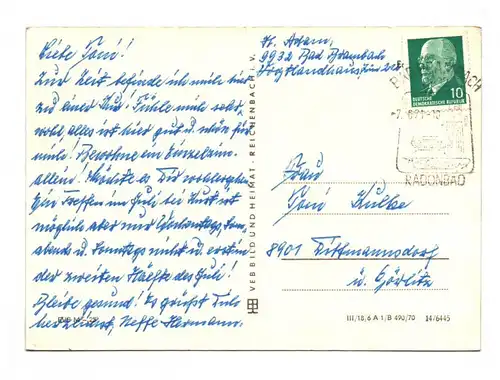 Liebe Toni!
Zur Zeit befinde ich mich hier
zu einer Kur! Fühle mich sehr
wohl, alles ist hier gut u. schön für
mich! Bewohne ein Einzelzim-
allein!
Ein Treffen im Juli bei Kurt ist
möglich aber nur Sonn-
abends u. Sonntags nicht u. erst in
der zweiten Hälfte des Juli!
Bleibe gesund! Es grüßt Dich
herzlichst, Neffe Hermann.
VEB BILD UND HEIMAT · REICHENBACH i. V.
H. Adam,
9932 Bad Brambach
Vogtlandhaus
10
DEUTSCHE
DEMOKRATISCHE REPUBLIK
RADONBAD
Frau
Toni Kulke
8901 Dittmannsdorf
ü. Görlitz
III/18/6 A 1/B 490/70 14/6445